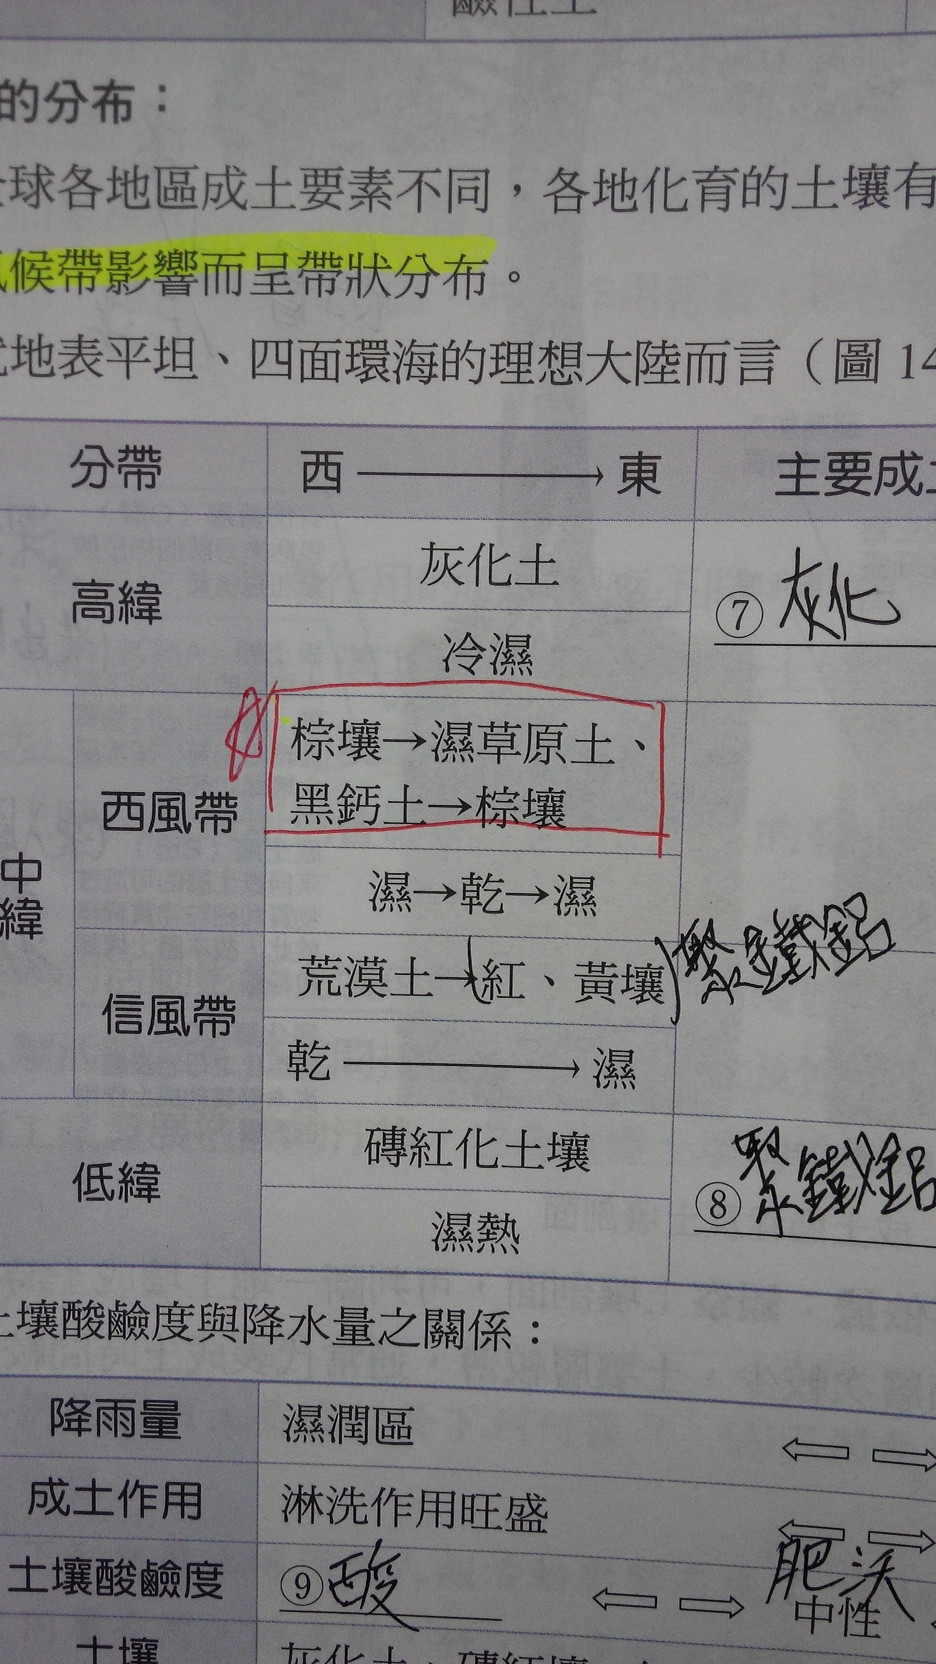 的分布：
球各地區成土要素不同，各地化育的土壤有
候帶影響而呈帶狀分布。
地表平坦、四面環海的理想大陸而言（圖 14
分帶 西→東 主要成土
高緯 灰化土 ⑦灰化
冷濕
中緯 西風帶 棕壤→濕草原土、
黑鈣土→棕壤
濕→乾→濕
信風帶 荒漠土→(紅、黃壤) 聚鐵鋁
乾→濕
低緯 磚紅化土壤 ⑧聚鐵鋁
濕熱
土壤酸鹼度與降水量之關係：
降雨量 濕潤區
成土作用 淋洗作用旺盛
土壤酸鹼度 ⑨酸 肥沃
中性
土壤 灰化土、磚紅壤